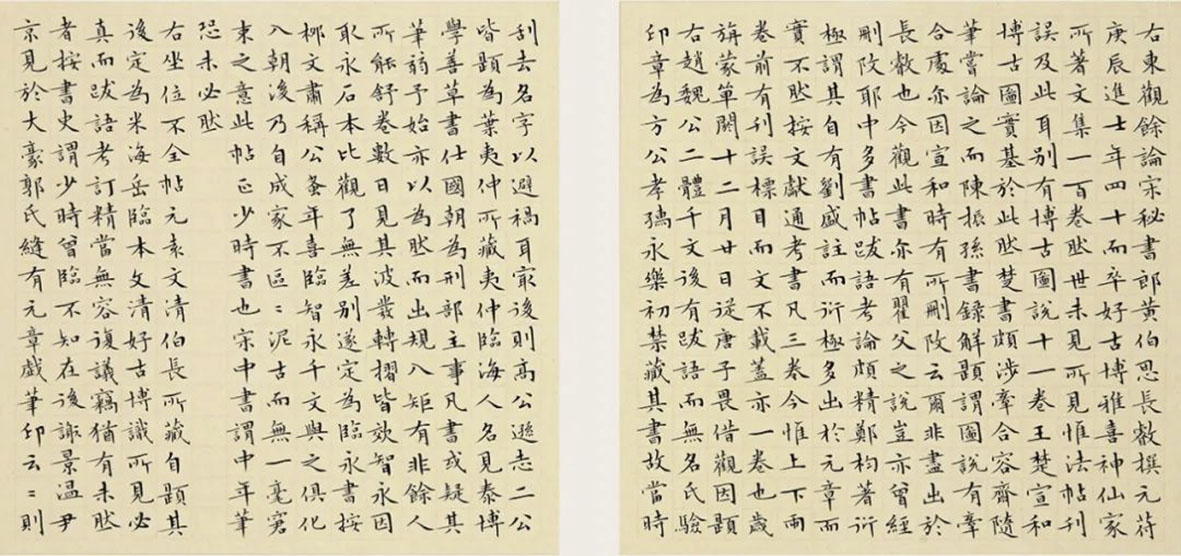 右東觀餘論宋秘書郎黃伯思長睿撰元符
庚辰進士年四十而卒好古博雅喜神仙家
所著文集一百卷然世未見所見惟法帖刊
誤及此耳別有博古圖說十一卷王楚宣和
博古圖實基於此然楚書頗涉牽合容齋隨
筆嘗論之而陳振孫書錄解題謂圖說有牽
合處亦因宣和時有所刪改云爾非盡出於
長睿也今觀此書亦有翟父之說豈亦曾經
刪改耶中多書帖跋語考論頗精鄭杓著衍
極謂其自有劉盛註而衍極多出於元章而
實不然按文獻通考書凡三卷今惟上下兩
卷前有刊誤標目而文不載蓋亦一卷也歲
旃蒙單閼十二月廿日從唐子畏借觀因題
右趙魏公二體千文後有跋語而無名氏驗
印章為方公孝孺永樂初禁藏其書故當時
刮去名字以避禍耳最後則高公遜志二公
皆題為葉夷仲所藏夷仲臨海人名見泰博
學善草書仕國朝為刑部主事凡書或疑其
筆弱予始亦以為然而出規入矩有非餘人
所能舒卷數日見其波發轉摺皆效智永因
取永石本比觀了無差別遂定為臨永書按
柳文肅稱公蚤年喜臨智永千文與之俱化
入朝後乃自成家不區〻泥古而無一毫窘
束之意此帖正少時書也宋中書謂中年筆
恐未必然
右坐位不全帖元袁文清伯長所藏自題其
後定為米海岳臨本文清好古博識所見必
真而跋語考訂精當無容復議竊猶有未然
者按書史謂少時曾臨不知在後諏景溫尹
京見於大豪郭氏縫有元章戲筆印云〻則